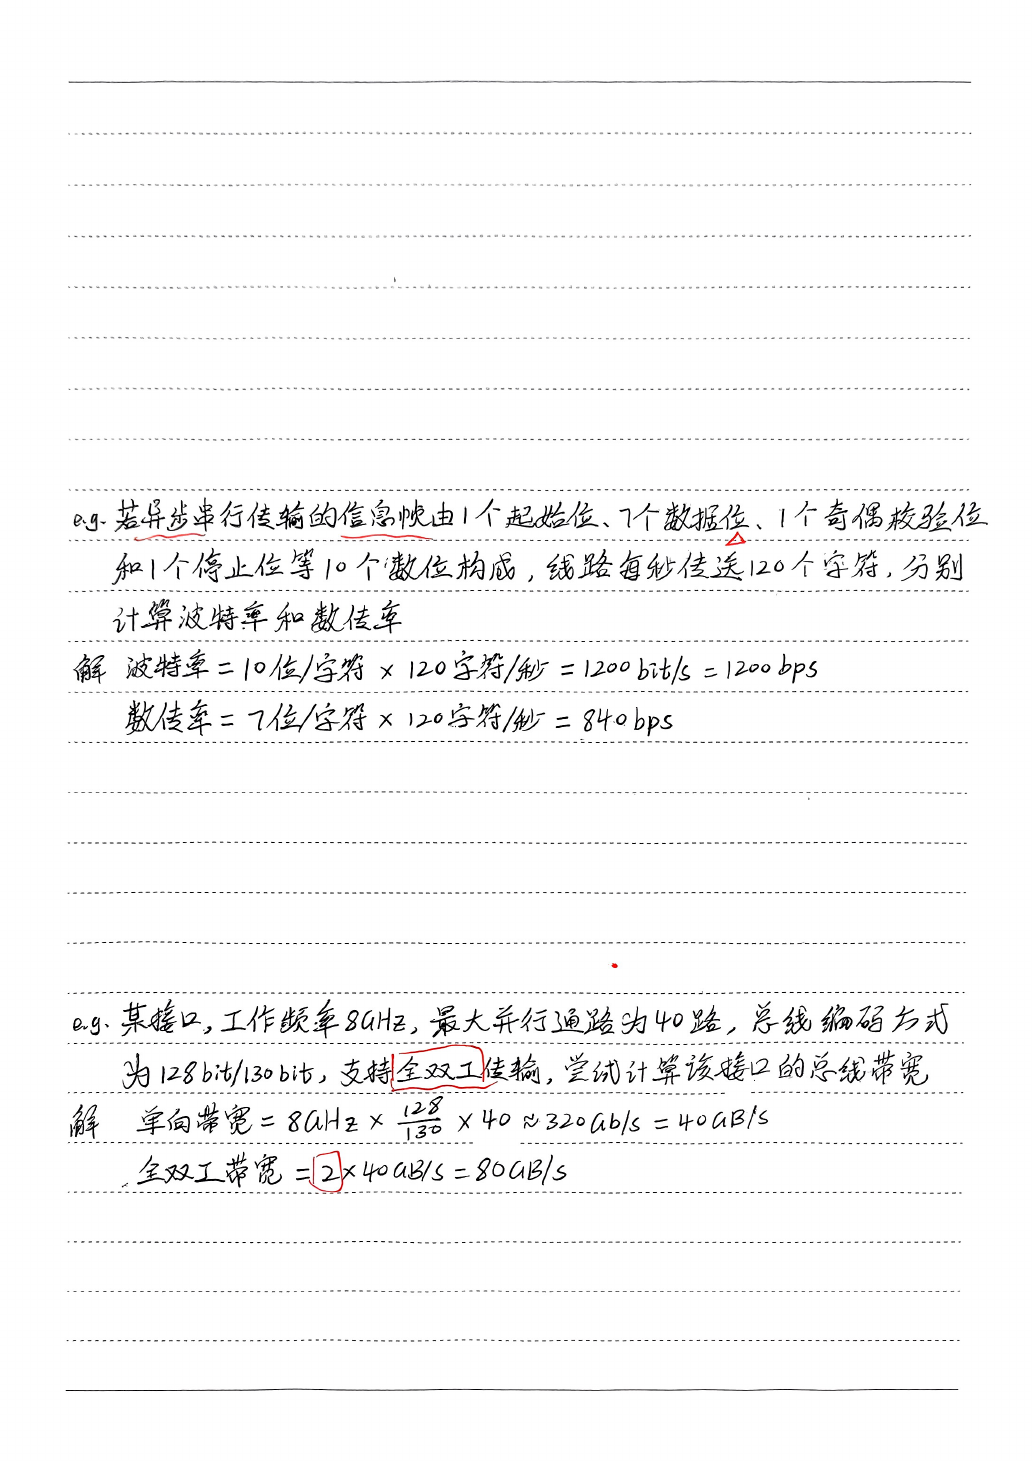 e.g. 若异步串行传输的信息帧由1个起始位、7个数据位、1个奇偶校验位
和1个停止位等10个数位构成，线路每秒传送120个字符，分别
计算波特率和数传率
解 波特率 = 10位/字符 × 120字符/秒 = 1200bit/s = 1200bps
数传率 = 7位/字符 × 120字符/秒 = 840bps
e.g. 某接口，工作频率8GHz，最大并行通路为40路，总线编码方式
为128bit/130bit，支持全双工传输，尝试计算该接口的总线带宽
解 单向带宽 = 8GHz × 128/130 × 40 ≈ 320Gb/s = 40GB/s
全双工带宽 = 2×40GB/s = 80GB/s